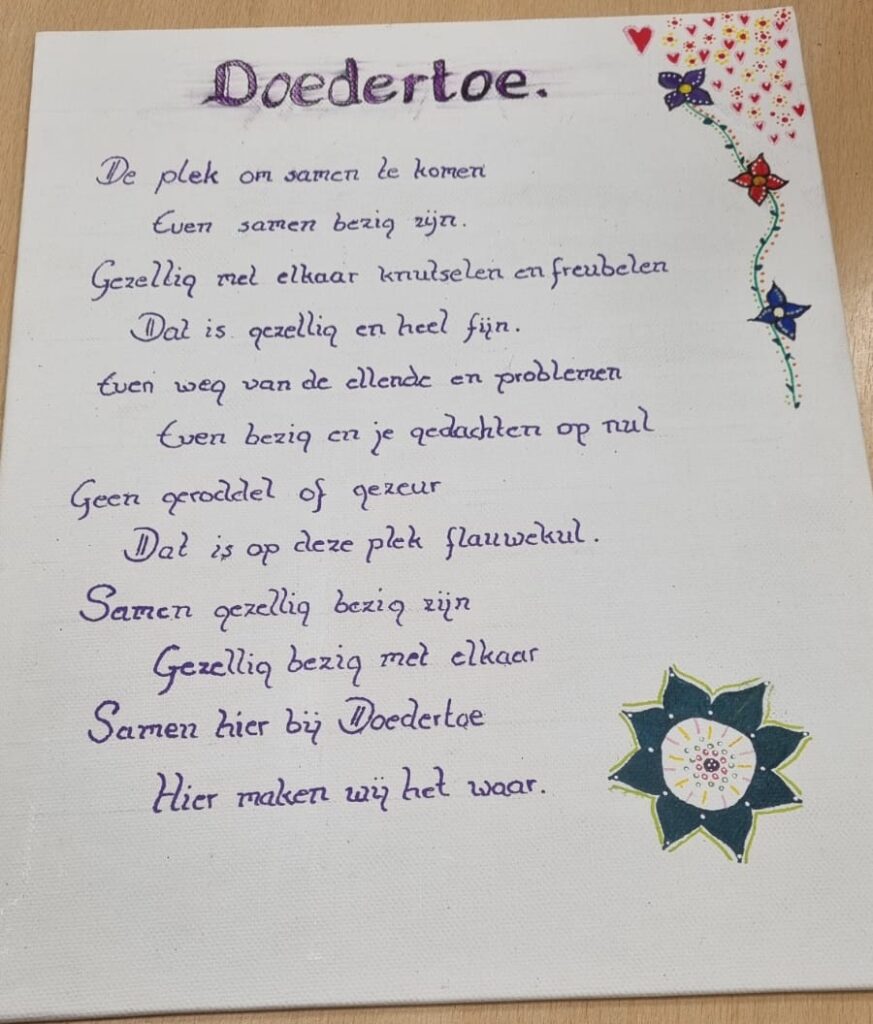 Doedertoe.
De plek om samen te komen
Even samen bezig zijn.
Gezellig met elkaar knutselen en freubelen
Dat is gezellig en heel fijn.
Even weg van de ellende en problemen
Even bezig en je gedachten op nul
Geen geroddel of gezeur
Dat is op deze plek flauwekul.
Samen gezellig bezig zijn
Gezellig bezig met elkaar
Samen hier bij Doedertoe
Hier maken wij het waar.